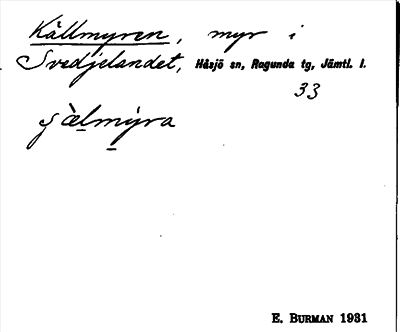 Källmyren, myr i
Svedjelandet, Håsjö sn, Ragunda tg, Jämtl. l.
33
ʃälmýra
E. BURMAN 1931